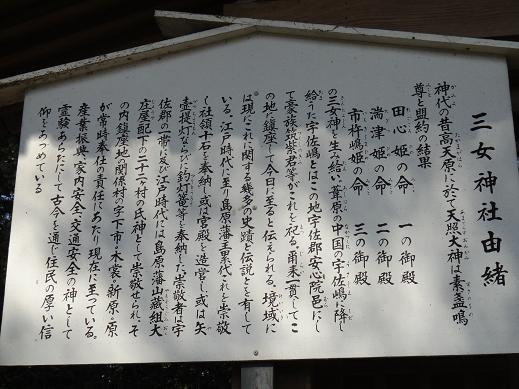 三女神社由緒
神代の昔高天原に於て天照大神は素盞鳴
尊と盟約の結果
田心姫の命 一の御殿
湍津姫の命 二の御殿
市杵嶋姫の命 三の御殿
の三女神を生み給い葦原の中国の宇佐嶋に降し
給うた宇佐嶋とはこの地宇佐郡安心院邑にし
て豪族筑紫君等がこれを祀る。爾来一貫してこ
の地に鎮座して今日に至ると伝えられる。境域に
は現にこれに関する幾多の史蹟と伝説とを有して
いる。江戸時代に至り島原藩主累代これを崇敬
し社領十石を奉納し或は宮殿を造営し或は矢
壷提灯ならびに釣灯篭等を奉納した崇敬者は宇
佐郡の一帯に及び江戸時代には島原藩山蔵組大
庄屋配下の二十二ヶ村の氏神として崇敬せられ、そ
の内鎮座地の関係村の字下市・木裳・新原・原
が常時奉仕の責任にあたり現在に至っている。
産業振興・家内安全・交通安全の神として
霊験あらたにして古今を通じ住民の厚い信
仰をあつめている